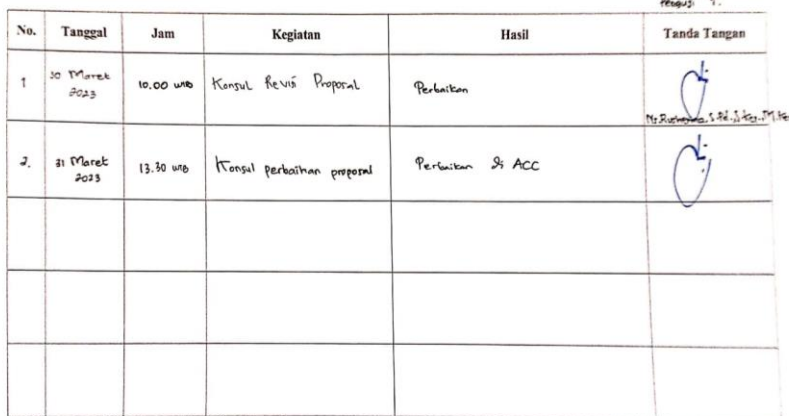 Penguji 1.
No. Tanggal Jam Kegiatan Hasil Tanda Tangan
1 30 Maret 2023 10.00 WIB Konsul Revisi Proposal Perbaikan
2. 31 Maret 2023 13.30 WIB Konsul perbaikan proposal Perbaikan di ACC